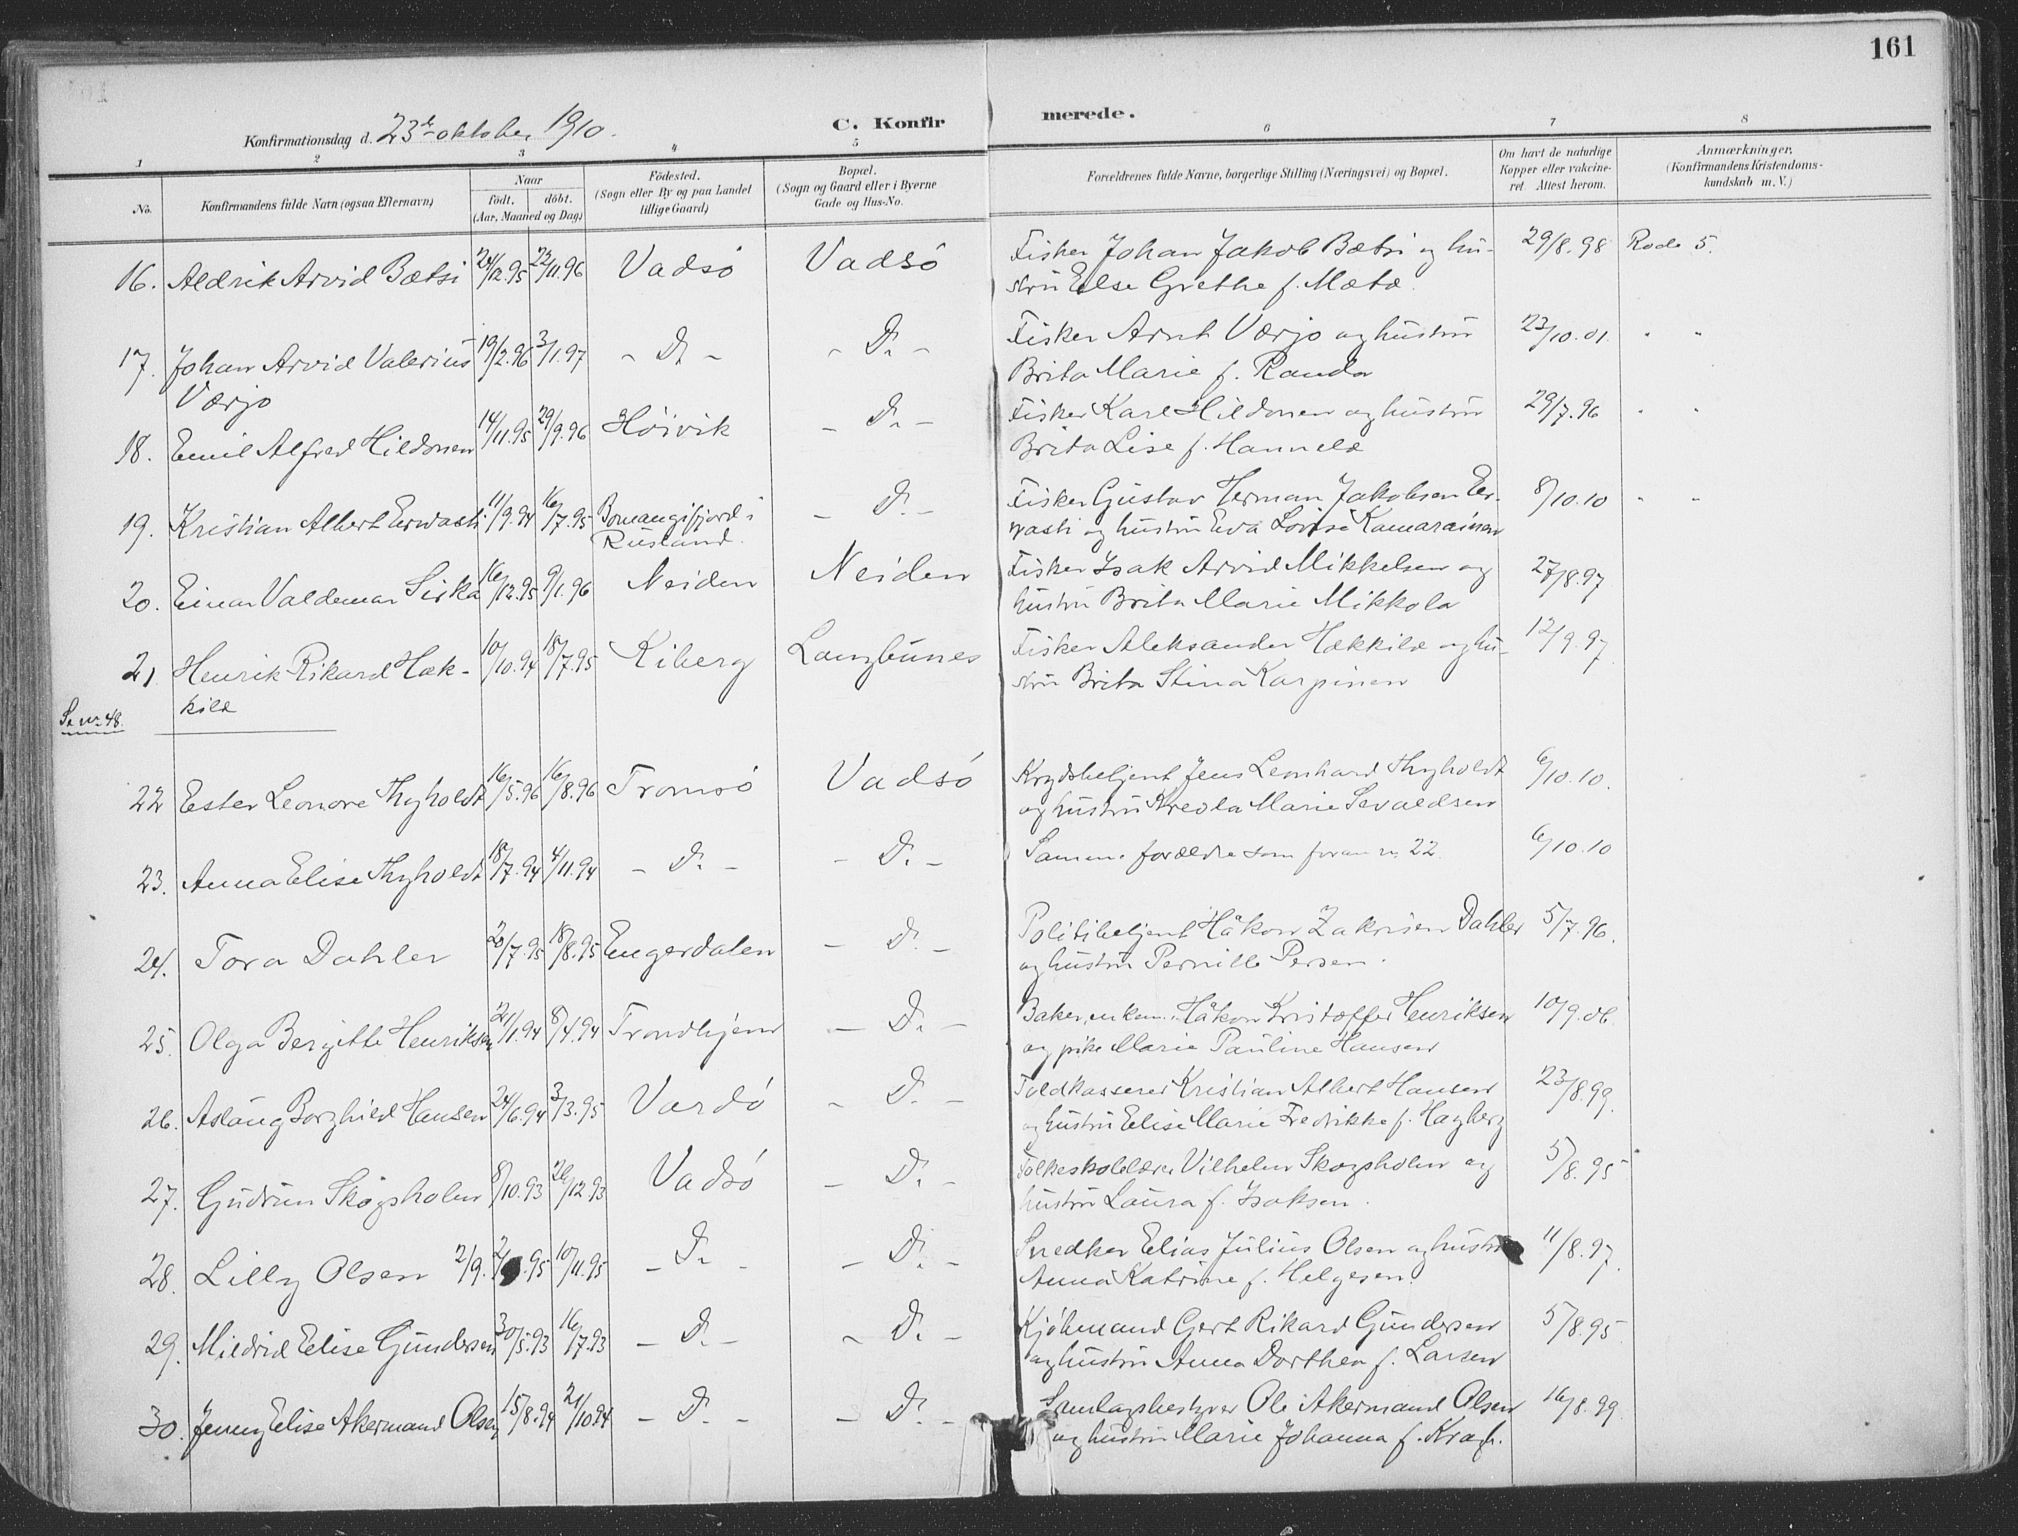 161
Konfirmationsdag d. 23de oktober 1910.
C. Konfirmerede.
1 2 3 4 5 6 7 8
No.
Konfirmandens fulde Navn (ogsaa Efternavn)
Naar
födt. döbt.
(Aar, Maaned og Dag)
Födested.
(Sogn eller By og paa Landet
tillige Gaard)
Bopæl.
(Sogn og Gaard eller i Byerne
Gade og Hus-No.
Forældrenes fulde Navne, borgerlige Stilling (Næringsvei) og Bopæl.
Om havt de naturlige
Kopper eller vakcine-
ret. Attest herom.
Anmærkninger.
(Konfirmandens Kristendoms-
kundskab m. V.)
16. Aldrik Arvid Bætsi 24/12.95 22/11.96 Vadsö Vadsö Fisker Johan Jakob Bætsi og hu- 29/8.98 Rode 5.
stru Else Grethe f. Mætä.
17. Johan Arvid Valerius 19/2.96 3/1.97 - D. - - D. - Fisker Arnt Værjo og hustru 23/10.01. " "
Værjo Brita Marie f. Randa
18. Emil Alfred Hildonen 14/11.95 29/9.96 Höivik - D. - Fisker Karl Hildonen og hustru 29/7.96 " "
Brita Lise f. Hannelä
19. Kristian Albert Erwasti 11/9.94 16/7.95 Bomangifjord i - D. - Fisker Gustav Herman Jakobsen Er- 8/10.10 " "
Rusland. wasti og hustru Eva Lovise Kamarainen
20. Einar Valdemar Sirka 16/12.95 9/1.96 Neiden Neiden Fisker Isak Arvid Mikkelsen og 27/8.97
hustru Brita Marie Mikkola
21. Henrik Rikard Hæk- 10/10.94 18/7.95 Kiberg Langbunes Fisker Aleksander Hækkilä og hu- 12/9.97
kilä stru Brita Stina Karpinen
Se nr. 48.
22 Ester Leonore Thyholdt 16/5.96 16/8.96 Tromsö Vadsö Krydsbetjent Jens Leonhard Thyholdt 6/10.10.
og hustru Kreola Marie Sevaldsen
23. Anna Elise Thyholdt 18/7.94 4/11.94 - D. - - D. - Samme forældre som foran nr. 22. 6/10.10
24. Tora Dahler 20/7.95 18/8.95 Engerdalen - D. - Politibetjent Håkon Zakrisen Dahler 5/7.96.
og hustru Pernille Persen.
25. Olga Bergitte Henriksen 21/1.94 8/4.94 Trondhjem - D. - Baker, Håkon Kristoffer Henriksen 10/9.06.
og pike Marie Pauline Hansen
26. Aslaug Borghild Hansen 24/6.94 3/3.95 Vardö - D. - Toldkasserer Kristian Albert Hansen 23/8.99.
og hustru Elise Marie Fredrikke f. Hagberg
27. Gudrun Skogsholm 8/10.93 26/12.93 Vadsö - D. - Folkeskolelærer Vilhelm Skogsholm og 5/8.95
hustru Laura f. Isaksen.
28. Lilly Olsen 2/9. .95 10/11.95 - D. - - D. - Snedker Elias Julius Olsen og hustru 11/8.97.
Anna Katrine f. Helgesen.
29. Mildrid Elise Gundersen 30/5.93 16/7.93 - D. - - D. - Kjöbmand Gert Rikard Gundersen 5/8.95
og hustru Anna Dorthea f. Larsen
30. Jenny Elise Akermand Olsen 15/8.94 21/10.94 - D. - - D. - Samlagsbestyrer Ole Akermand Olsen 16/8.99
og hustru Marie Johanna f. Krogh.